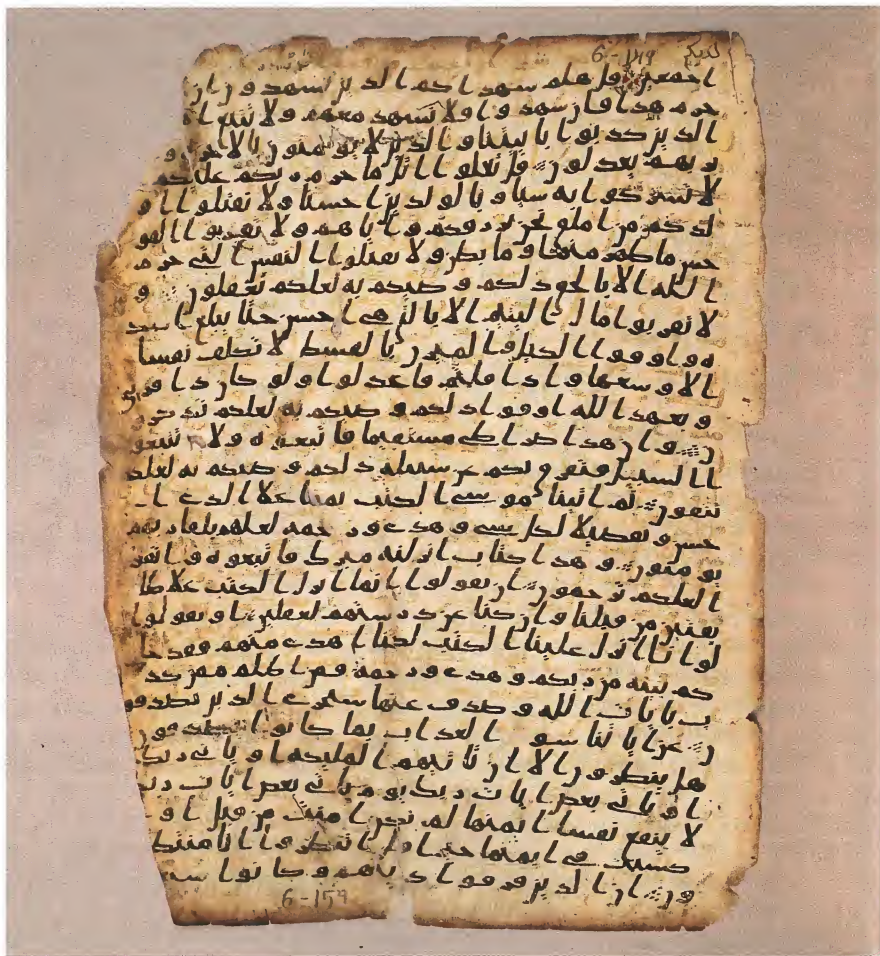 6-149
اجمعين قل هلم شهداكم الذين يشهدون ان
حرم هذا فان شهدوا فلا تشهد معهم ولا تتبع ا
الذين كذبوا باييتنا والذين لا يومنون بالاخرة و
بربهم يعدلون قل تعلوا اتل ما حرم ربكم عليكم
لا تشركوا به شيا وبالولدين احسنا ولا تقتلوا او
لدكم من املق نحن نرزقكم واياهم ولا تقربوا الفو
حش ما ظهر منها وما بطن ولا تقتلوا النفس التي حرم
الله الا بالحق ذلكم وصيكم به لعلكم تعقلون و
لا تقربوا مال اليتيم الا بالتي هي احسن حتا يبلغ اشد
ه واوفوا الكيل والميزن بالقسط لا نكلف نفسا
الا وسعها واذا قلتم فاعدلوا ولو كان ذا قربى
وبعهد الله اوفوا ذلكم وصيكم به لعلكم تذكرو
ن وان هذا صرطي مستقيما فاتبعوه ولا تتبعو
ا السبل فتفرق بكم عن سبيله ذلكم وصيكم به لعلكم
تتقون ثم اتينا موسى الكتب تماما علا الذي ا
حسن وتفصيلا لكل شي وهدى ورحمة لعلهم بلقا ربهم
يومنون وهذا كتاب انزلنه مبرك فاتبعوه واتقو
ا لعلكم ترحمون ان تقولوا انما انزل الكتب علا طا
يفتين من قبلنا وان كنا عن درستهم لغفلين او تقولوا
لو انا انزل علينا الكتب لكنا اهدى منهم فقد جا
كم بينة من ربكم وهدى ورحمة فمن اظلم ممن كذ
ب بايات الله وصدف عنها سنجزي الذين يصدفو
ن عن ايتنا سو العذاب بما كانوا يصدفون
هل ينظرون الا ان تاتيهم المليكة او ياتي ربك
او ياتي بعض ايات ربك يوم ياتي بعض ايات ربك
لا ينفع نفسا ايمنها لم تكن امنت من قبل او
كسبت في ايمنها خيرا قل انتظروا انا منتظر
ون ان الذين فرقوا دينهم وكانوا شيـ
6-159